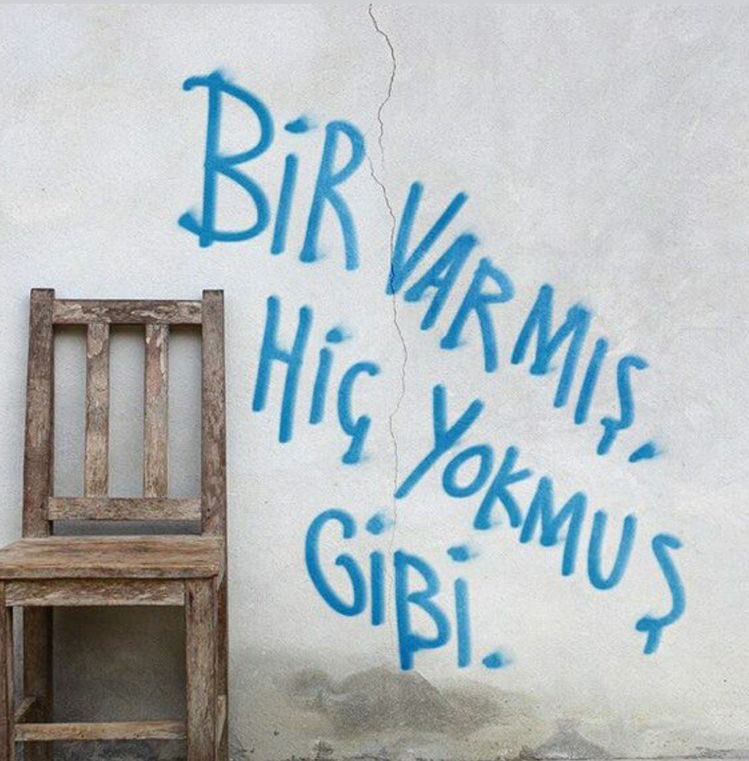 BİR VARMIŞ,
HİÇ YOKMUŞ
GİBİ.